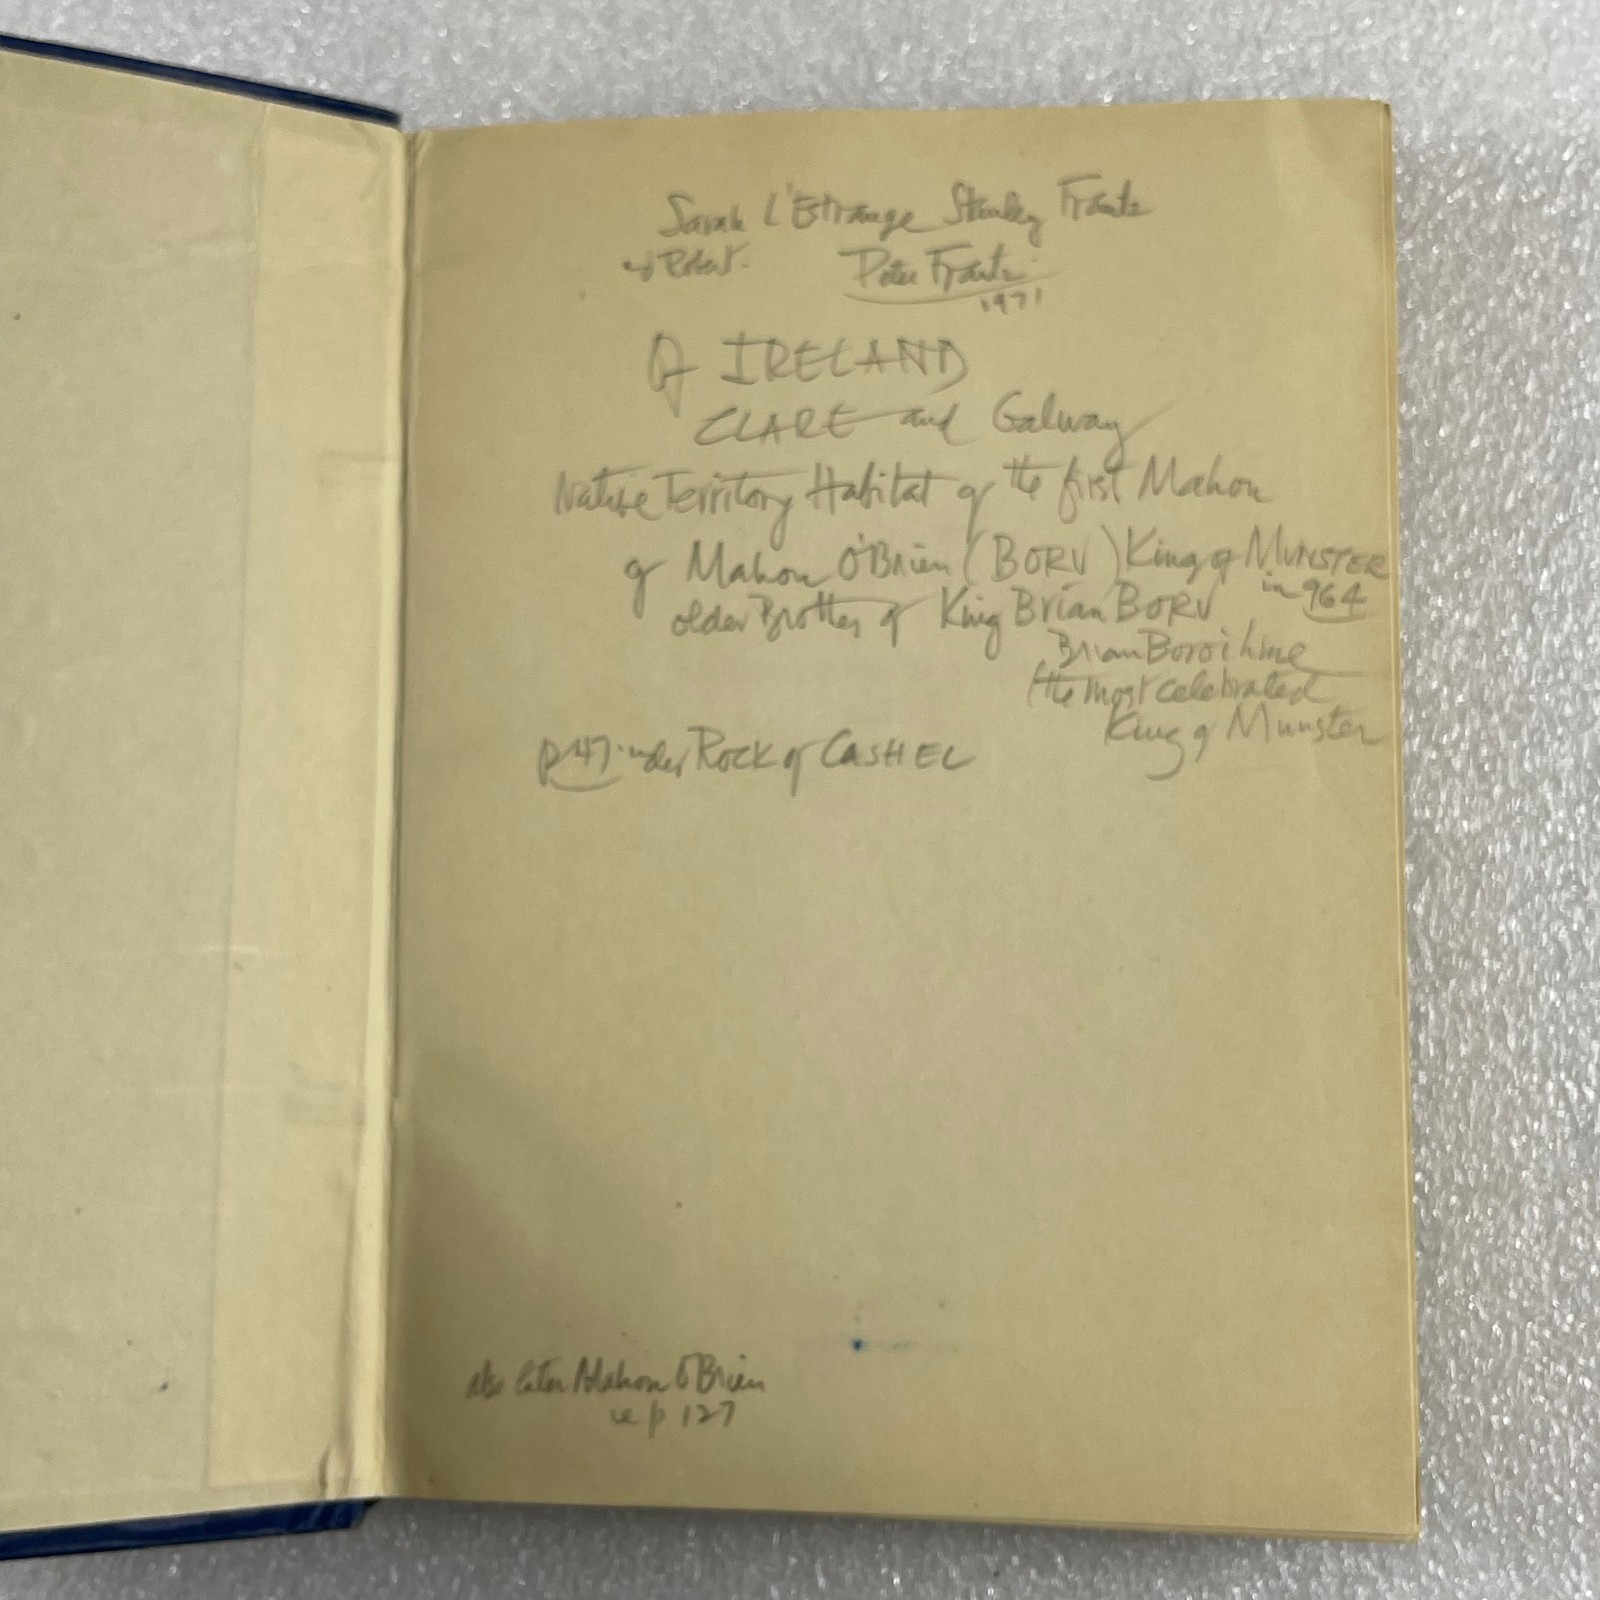 Sarah L'Estrange Stanley Frantz
of Robert. Peter Frantz
1971
Of IRELAND
CLARE and Galway
Native Territory Habitat of the first Mahon
of Mahon O'Brien (BORU) King of MUNSTER
in 964
older Brother of King Brian BORU
Brian Boroihme
the most celebrated
King of Munster
p 47 under ROCK of CASHEL
also later Mahon O'Brien
p 127